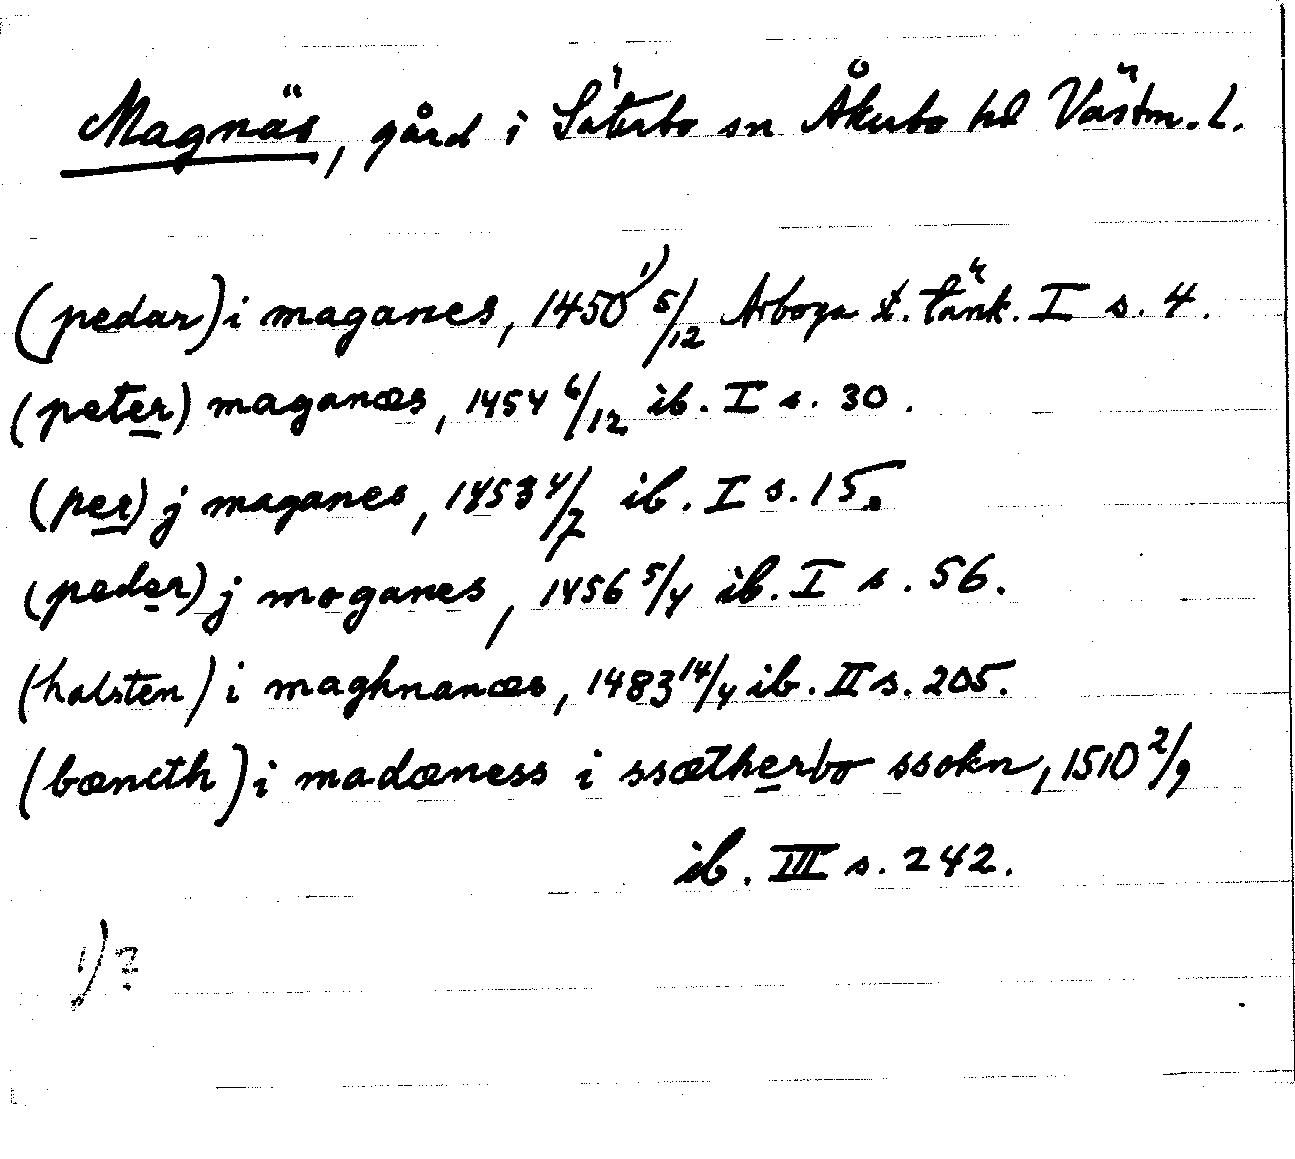 Magnäs, gård i Säterbo sn Åkerbo hd Västm. L.
(pedar) i maganes, 1450¹⁾ 5/12 Arboga t. tänk. I s. 4.
(peter) maganæs, 1454 6/12 ib. I s. 30.
(per) j maganes, 1453 4/7 ib. I s. 15.
(peder) j moganes, 1456 5/4 ib. I s. 56.
(halsten) i maghnanæs, 1483 14/4 ib. II s. 205.
(bæncth) i madæness i ssætherbo ssokn, 1510 2/9
ib. III s. 242.
1) ?